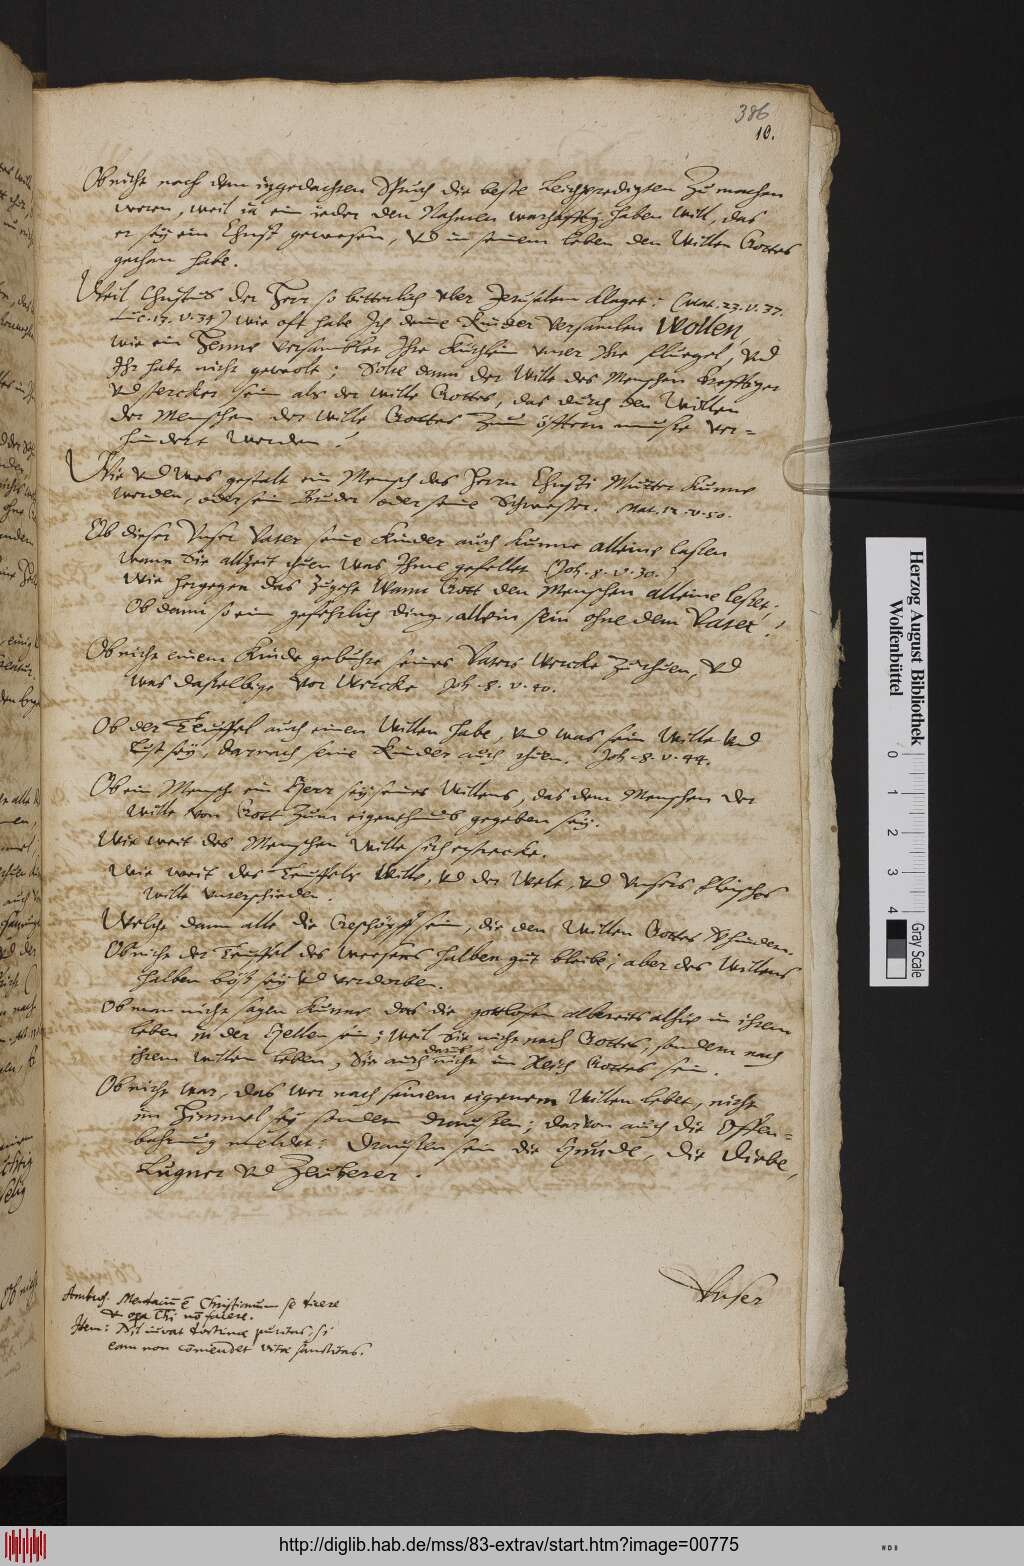 386
10.
Ob nicht nach dem itzgedachten Spruch die beste Leichpredigten zu machen
weren, weil ia ein ieder den Nahmen warhafftig haben will, das
er sey ein Christ gewesen, vnd in seinem leben den Willen Gottes
gethan habe.
Weil Christus der Herr so bitterlich vber Jerusalem klaget: (Mat. 23. v. 37.
Luc. 13. v. 34) wie oft habe Ich deine Kinder versamlen Wollen,
wie ein Henne versamblet Ihre Küchlein vnter Ihre flügel, vnd
Ihr habt nicht gewolt; Solte dann der Wille des Menschen krefftiger
vnd stercker sein als der wille Gottes, das durch den Willen
der Menschen der wille Gottes zum öfftern muste ver=
hindert werden?
Wie vnd was gestalt ein Mensch des Herrn Christi Mutter kunne
werden, oder sein Bruder oder seine Schwester. Mat. 12. v. 50.
Ob dieser Vnser Vater seine Kinder auch kunne alleine laßen
wann Sie allzeit thuen was Ihme gefellet (Joh. 8. v. 30.)
Wie hergegen das zugehe Wann Gott den Menschen alleine leßet;
Ob dann so ein gefehrlich ding, allein sein ohne dem Vater!
Ob nicht einem Kinde gebühre seines Vaters Wercke zu thuen, vnd
was dasselbige vor Wercke Joh. 8. v. 40.
Ob der Teuffel auch einen Willen habe, vnd was sein Wille vnd
Lust sey, darnach seine Kinder auch thuen. Joh. 8. v. 44.
Ob ein Mensch ein Herr sey seines Willens, das dem Menschen der
Wille von Gott zum eigenthumb gegeben sey.
Wie weit des Menschen Wille sich erstrecke.
Wie weit des Teuffels Wille, vnd der Welt, vnd vnsers fleisches
Wille vnterschieden.
Welche dann alle die Geschöpff sein, die den Willen Gottes
Ob nicht der Teuffel des wesens halben gut bleibe; aber des Willens
halben böß sey vnd verdorben.
Ob man nicht sagen kunne das die gottlosen albereits alhie in ihrem
leben in der Hellen sein; weil Sie nicht nach Gottes, sondern nach
ihrem willen leben, Sie auch darumb nicht im Reich Gottes sein.
Ob nicht war, das wer nach seinem eigenem Willen lebet, nicht
im Himmel sey sondern draussen; darvon auch die Offen=
bahrung meldet: Draussen sein die Hunde, die Diebe,
Lugner vnd Zeuberer.
Vnser
Ambros. Mendaciū ē Christianum se dicere
& opa Chi nō facere.
Item: Nil iuvat doctrinæ puritas, si
eam non comendet vitæ sanctitas.
Herzog August Bibliothek
Wolfenbüttel
0 1 2 3 4
Gray Scale
http://diglib.hab.de/mss/83-extrav/start.htm?image=00775